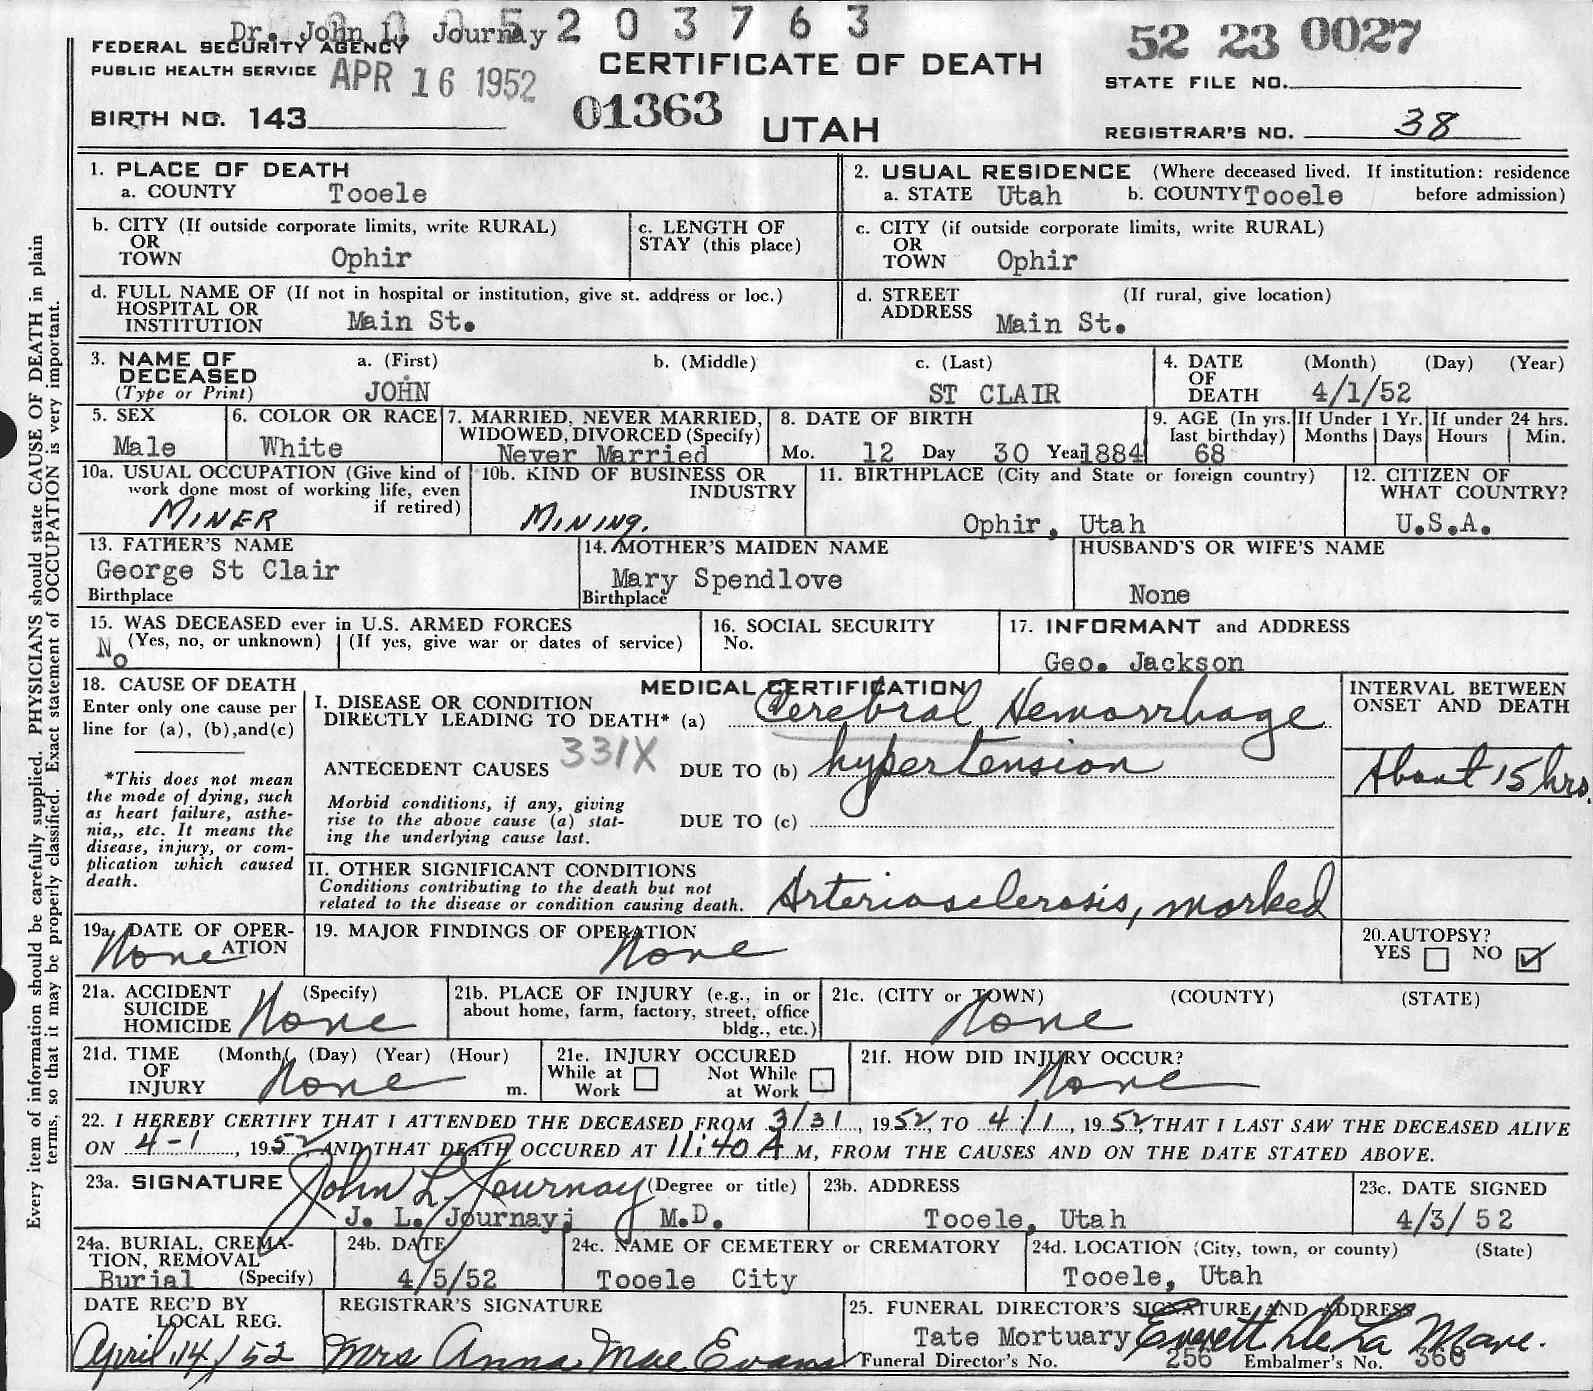 Dr. John L. Journay 2 0 3 7 6 3
FEDERAL SECURITY AGENCY
PUBLIC HEALTH SERVICE APR 16 1952
CERTIFICATE OF DEATH
52 23 0027
STATE FILE NO.
BIRTH NO. 143
01363
UTAH
REGISTRAR'S NO. 38
1. PLACE OF DEATH
a. COUNTY Tooele
2. USUAL RESIDENCE (Where deceased lived. If institution: residence
a. STATE Utah b. COUNTY Tooele before admission)
b. CITY (If outside corporate limits, write RURAL)
OR
TOWN Ophir
c. LENGTH OF
STAY (this place)
c. CITY (if outside corporate limits, write RURAL)
OR
TOWN Ophir
d. FULL NAME OF (If not in hospital or institution, give st. address or loc.)
HOSPITAL OR
INSTITUTION Main St.
d. STREET (If rural, give location)
ADDRESS Main St.
3. NAME OF a. (First) b. (Middle) c. (Last)
DECEASED
(Type or Print) JOHN ST CLAIR
4. DATE (Month) (Day) (Year)
OF
DEATH 4/1/52
5. SEX
Male
6. COLOR OR RACE
White
7. MARRIED, NEVER MARRIED,
WIDOWED, DIVORCED (Specify)
Never Married
8. DATE OF BIRTH
Mo. 12 Day 30 Year 1884
9. AGE (In yrs.
last birthday)
68
If Under 1 Yr.
Months Days
If under 24 hrs.
Hours Min.
10a. USUAL OCCUPATION (Give kind of
work done most of working life, even
if retired)
MINER
10b. KIND OF BUSINESS OR
INDUSTRY
MINING.
11. BIRTHPLACE (City and State or foreign country)
Ophir, Utah
12. CITIZEN OF
WHAT COUNTRY?
U.S.A.
13. FATHER'S NAME
George St Clair
Birthplace
14. MOTHER'S MAIDEN NAME
Mary Spendlove
Birthplace
HUSBAND'S OR WIFE'S NAME
None
15. WAS DECEASED ever in U.S. ARMED FORCES
(Yes, no, or unknown) (If yes, give war or dates of service)
No
16. SOCIAL SECURITY
No.
17. INFORMANT and ADDRESS
Geo. Jackson
18. CAUSE OF DEATH
Enter only one cause per
line for (a), (b),and(c)
*This does not mean
the mode of dying, such
as heart failure, asthe-
nia,, etc. It means the
disease, injury, or com-
plication which caused
death.
MEDICAL CERTIFICATION
I. DISEASE OR CONDITION
DIRECTLY LEADING TO DEATH* (a) Cerebral Hemorrhage
331X
ANTECEDENT CAUSES DUE TO (b) hypertension
Morbid conditions, if any, giving
rise to the above cause (a) stat-
ing the underlying cause last.
DUE TO (c)
INTERVAL BETWEEN
ONSET AND DEATH
About 15 hrs.
II. OTHER SIGNIFICANT CONDITIONS
Conditions contributing to the death but not
related to the disease or condition causing death.
Arteriosclerosis, marked
19a. DATE OF OPER-
ATION
None
19. MAJOR FINDINGS OF OPERATION
None
20. AUTOPSY?
YES NO ✓
21a. ACCIDENT (Specify)
SUICIDE
HOMICIDE None
21b. PLACE OF INJURY (e.g., in or
about home, farm, factory, street, office
bldg., etc.)
21c. (CITY or TOWN) (COUNTY) (STATE)
None
21d. TIME (Month) (Day) (Year) (Hour)
OF
INJURY None m.
21e. INJURY OCCURED
While at Not While
Work at Work
21f. HOW DID INJURY OCCUR?
None
22. I HEREBY CERTIFY THAT I ATTENDED THE DECEASED FROM 3/31, 1952, TO 4/1, 1952, THAT I LAST SAW THE DECEASED ALIVE
ON 4-1, 1952 AND THAT DEATH OCCURED AT 11:40 A M, FROM THE CAUSES AND ON THE DATE STATED ABOVE.
23a. SIGNATURE John L. Journay (Degree or title)
J. L. Journay, M.D.
23b. ADDRESS
Tooele, Utah
23c. DATE SIGNED
4/3/52
24a. BURIAL, CREMA-
TION, REMOVAL
Burial (Specify)
24b. DATE
4/5/52
24c. NAME OF CEMETERY or CREMATORY
Tooele City
24d. LOCATION (City, town, or county) (State)
Tooele, Utah
DATE REC'D BY
LOCAL REG.
April 14/52
REGISTRAR'S SIGNATURE
Mrs Anna Mae Evans
25. FUNERAL DIRECTOR'S SIGNATURE AND ADDRESS
Tate Mortuary Everett De La Mare.
Funeral Director's No. 256 Embalmer's No. 366
Every item of information should be carefully supplied. PHYSICIANS should state CAUSE OF DEATH in plain
terms, so that it may be properly classified. Exact statement of OCCUPATION is very important.